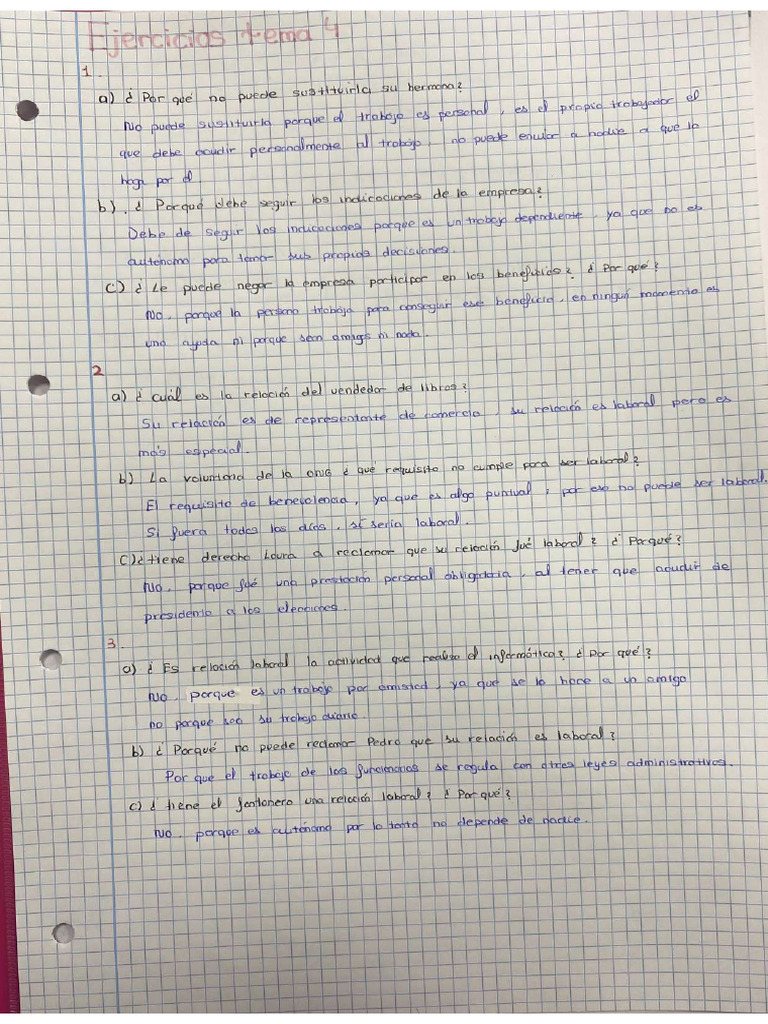 Ejercicios tema 4
1.
a) ¿Por qué no puede sustituirla su hermana?
No puede sustituirla porque el trabajo es personal, es el propio trabajador el
que debe acudir personalmente al trabajo, no puede enviar a nadie a que lo
haga por él.
b). ¿Porqué debe seguir las indicaciones de la empresa?
Debe de seguir las indicaciones porque es un trabajo dependiente, ya que no es
autónomo para tomar sus propias decisiones.
c) ¿Le puede negar la empresa participar en los beneficios? ¿Por qué?
No, porque la persona trabaja para conseguir ese beneficio, en ningún momento es
una ayuda ni porque sean amigs ni nada.
2
a) ¿cuál es la relación del vendedor de libros?
Su relación es de representante de comercio, su relación es laboral pero es
más especial.
b) La voluntaria de la ONG ¿qué requisito no cumple para ser laboral?
El requisito de benevolencia, ya que es algo puntual, por eso no puede ser laboral.
Si fuera todos los días, sí sería laboral.
c) ¿tiene derecho Laura a reclamar que su relación fué laboral? ¿Porqué?
No, porque fué una prestación personal obligatoria, al tener que acudir de
presidenta a las elecciones.
3.
a) ¿Es relación laboral la actividad que realiza el informático? ¿Por qué?
No, porque es un trabajo por amistad, ya que se lo hace a un amigo
no porque sea su trabajo diario.
b) ¿Porqué no puede reclamar Pedro que su relación es laboral?
Por que el trabajo de los funcionarios se regula con otras leyes administrativas.
c) ¿tiene el fontanero una relación laboral? ¿Por qué?
No, porque es autónomo por lo tanto no depende de nadie.